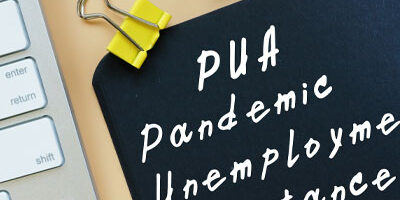 enter
return
shift
PUA
Pandemic
Unemployme
tance